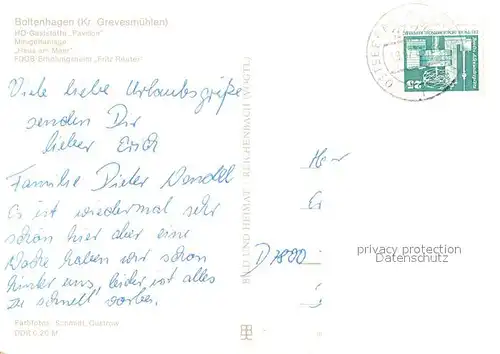 Boltenhagen (Kr. Grevesmühlen)
HO-Gaststätte „Pavillon"
Minigolfanlage
„Haus am Meer"
FDGB-Erholungsheim „Fritz Reuter"
Viele liebe Urlaubsgrüße
senden Dir
lieber Erich
Familie Dieter
Es ist wiedermal sehr
schön hier aber eine
Woche haben wir schon
hinter uns, leider ist alles
zu schnell vorbei.
Farbfotos: Schmidt, Güstrow
DDR 0,20 M
BILD UND HEIMAT REICHENBACH
OSTSEE
25
Her
Er
D 7800
privacy protection
Datenschutz